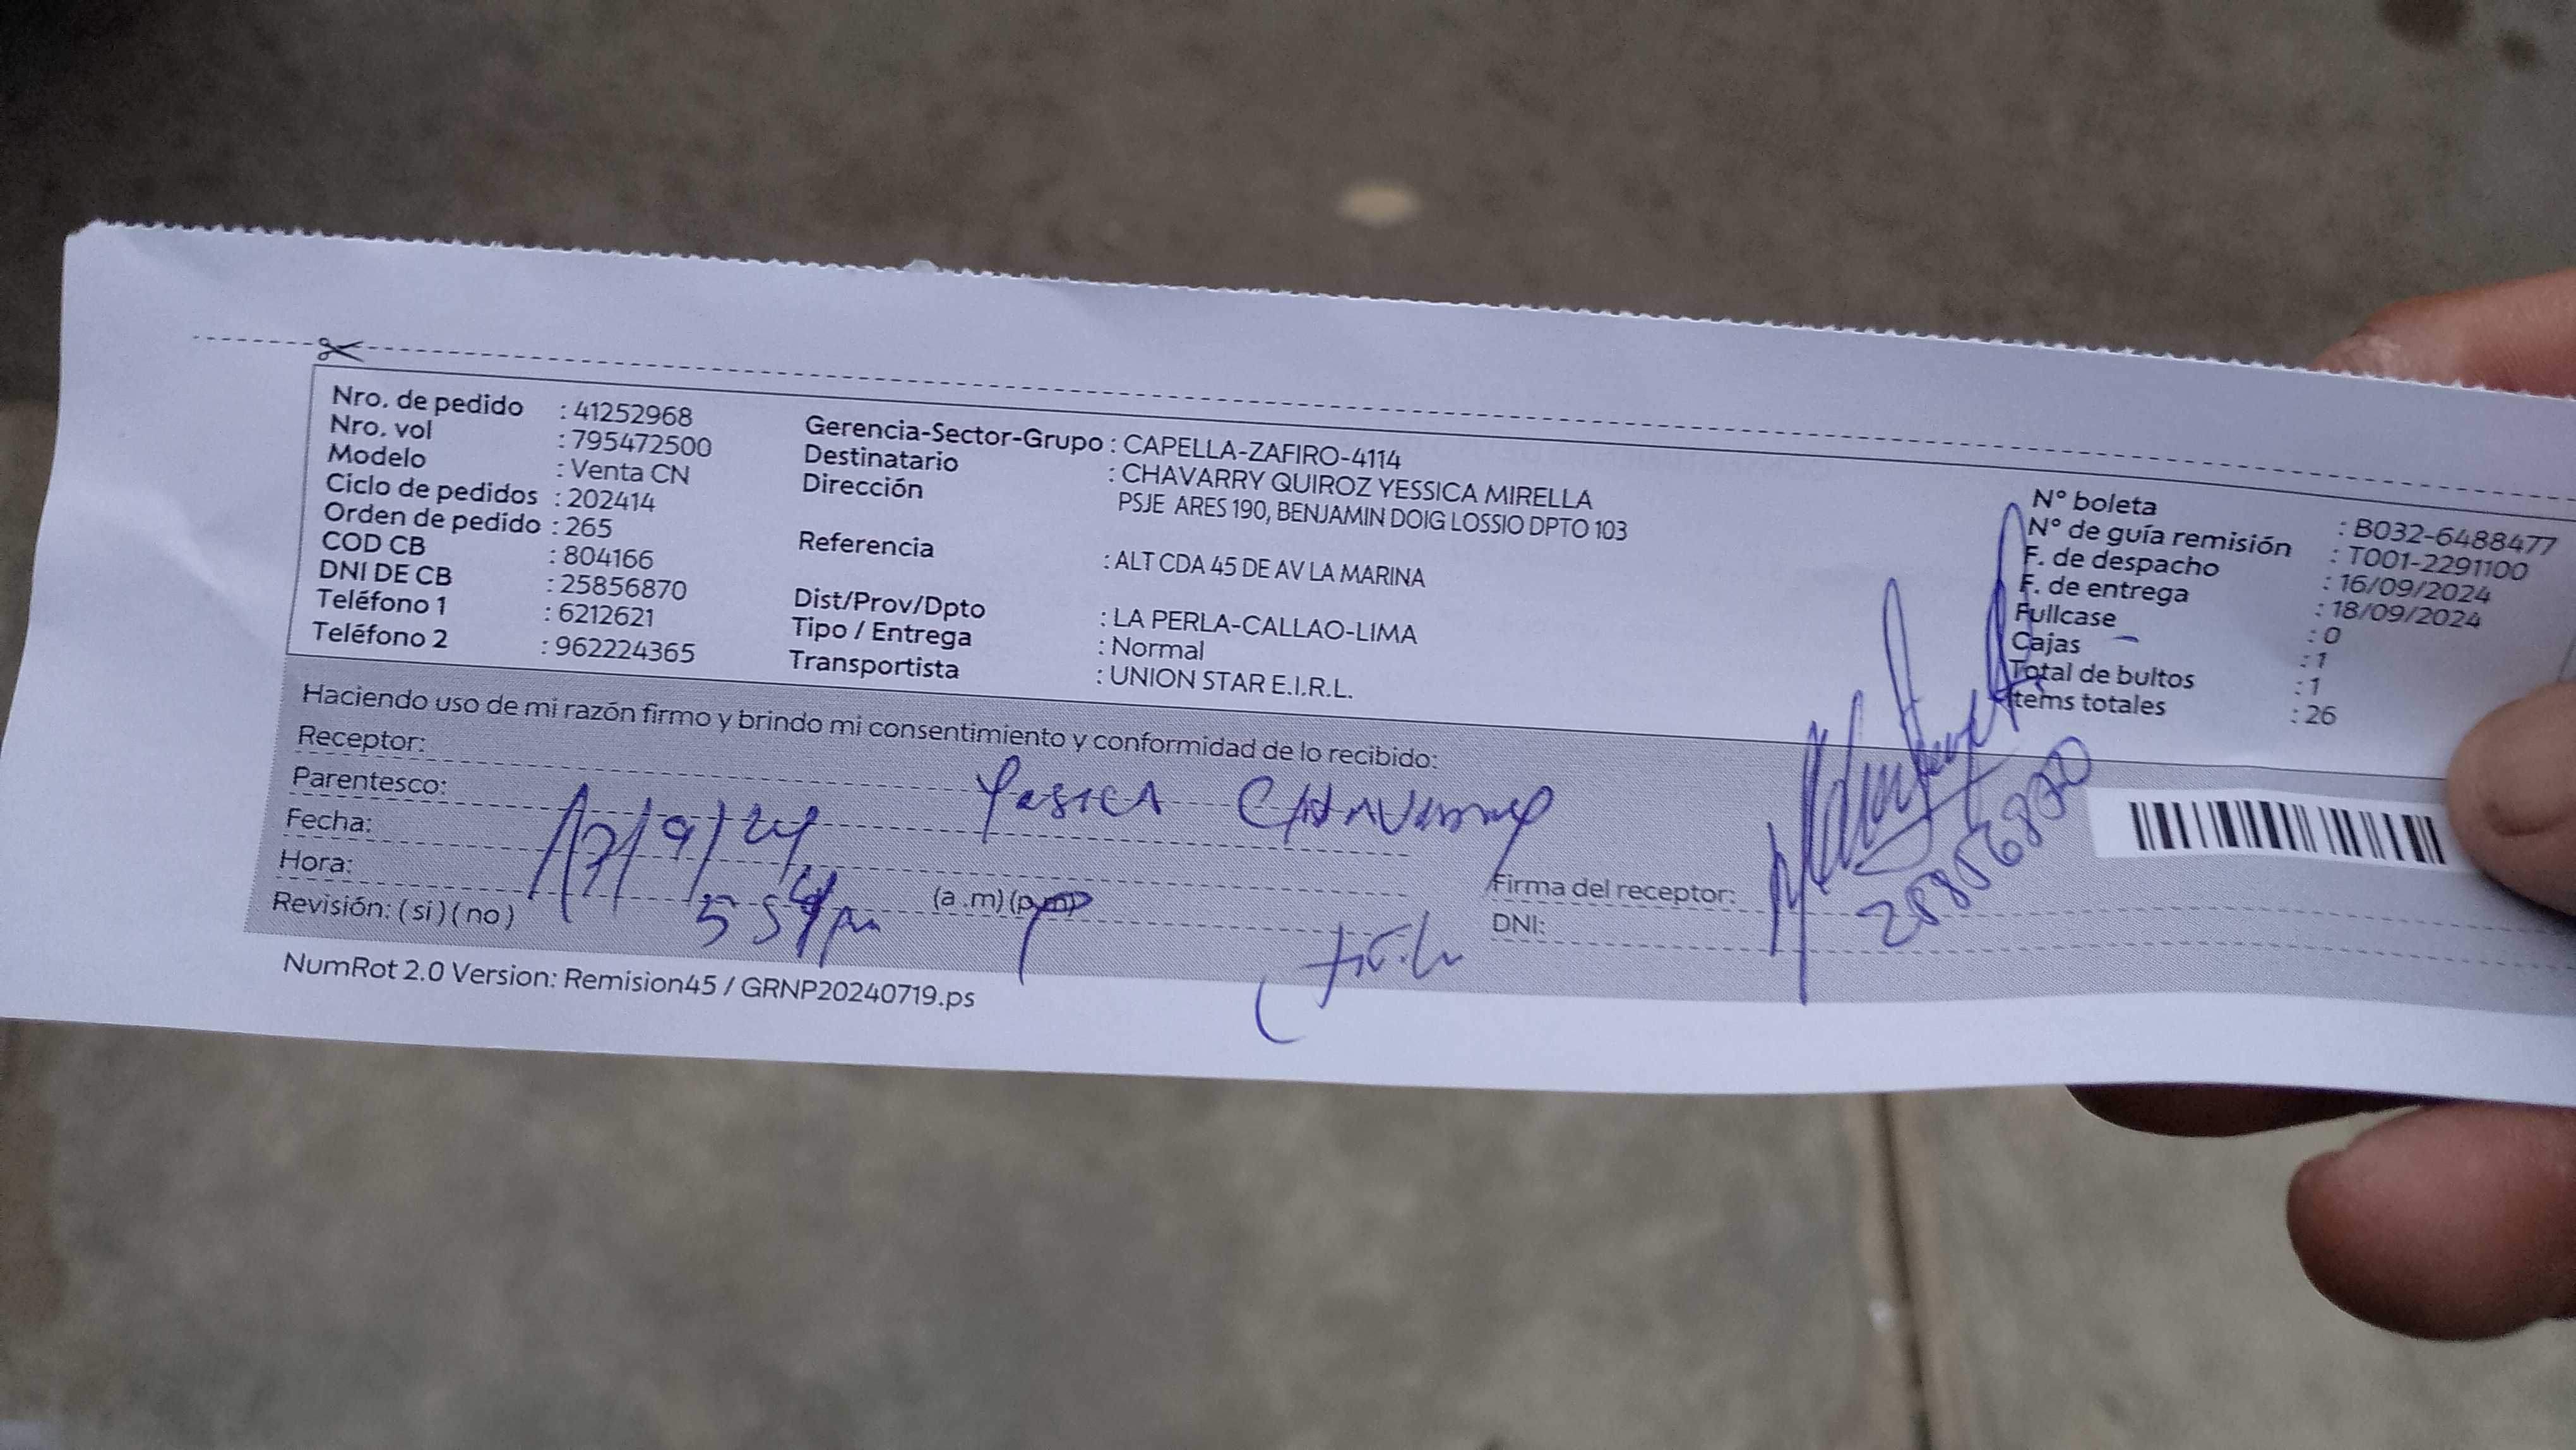 Nro. de pedido : 41252968
Nro. vol : 795472500
Modelo : Venta CN
Ciclo de pedidos : 202414
Orden de pedido : 265
COD CB : 804166
DNI DE CB : 25856870
Teléfono 1 : 6212621
Teléfono 2 : 962224365
Gerencia-Sector-Grupo : CAPELLA-ZAFIRO-4114
Destinatario : CHAVARRY QUIROZ YESSICA MIRELLA
Dirección PSJE ARES 190, BENJAMIN DOIG LOSSIO DPTO 103
Referencia : ALT CDA 45 DE AV LA MARINA
Dist/Prov/Dpto : LA PERLA-CALLAO-LIMA
Tipo / Entrega : Normal
Transportista : UNION STAR E.I.R.L.
N° boleta : B032-6488477
N° de guía remisión : T001-2291100
F. de despacho : 16/09/2024
F. de entrega : 18/09/2024
Fullcase : 0
Cajas : 1
Total de bultos : 1
Items totales : 26
Haciendo uso de mi razón firmo y brindo mi consentimiento y conformidad de lo recibido:
Receptor:
Parentesco:
Fecha: 17/9/24
Hora: 5 54 pm (a .m) (p.m)
Revisión: ( si ) ( no )
Firma del receptor:
DNI: 25856870
NumRot 2.0 Version: Remision45 / GRNP20240719.ps